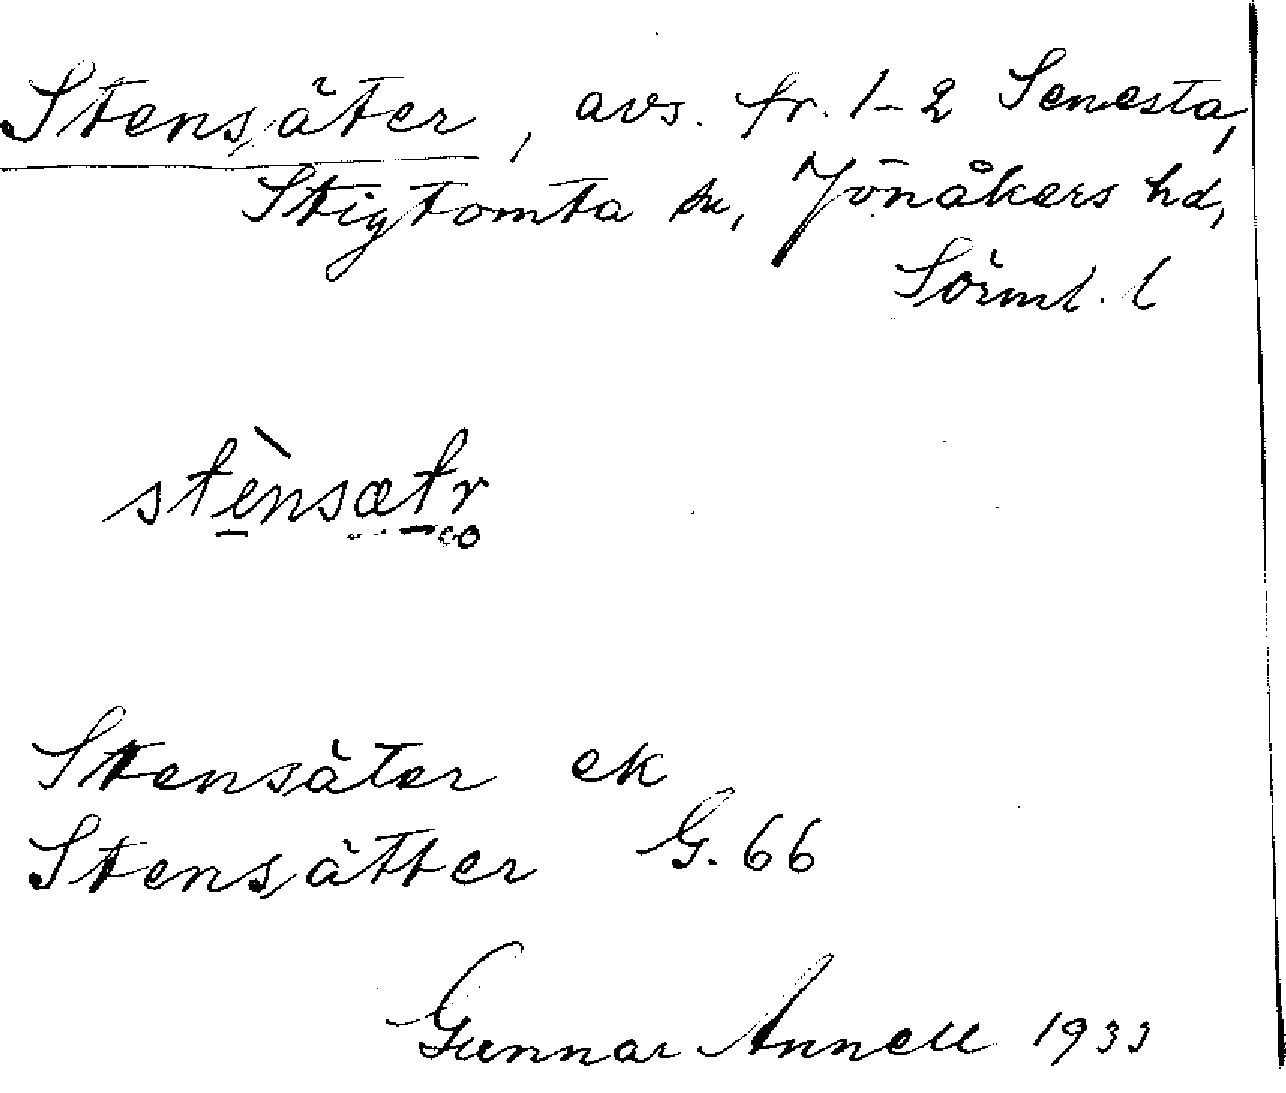 Stensäter, avs. fr. 1-2 Senesta,
Stigtomta sn, Jönåkers hd,
Sörml. l
stènsætr
Stensäter ek
Stensätter G. 66
Gunnar Annell 1933